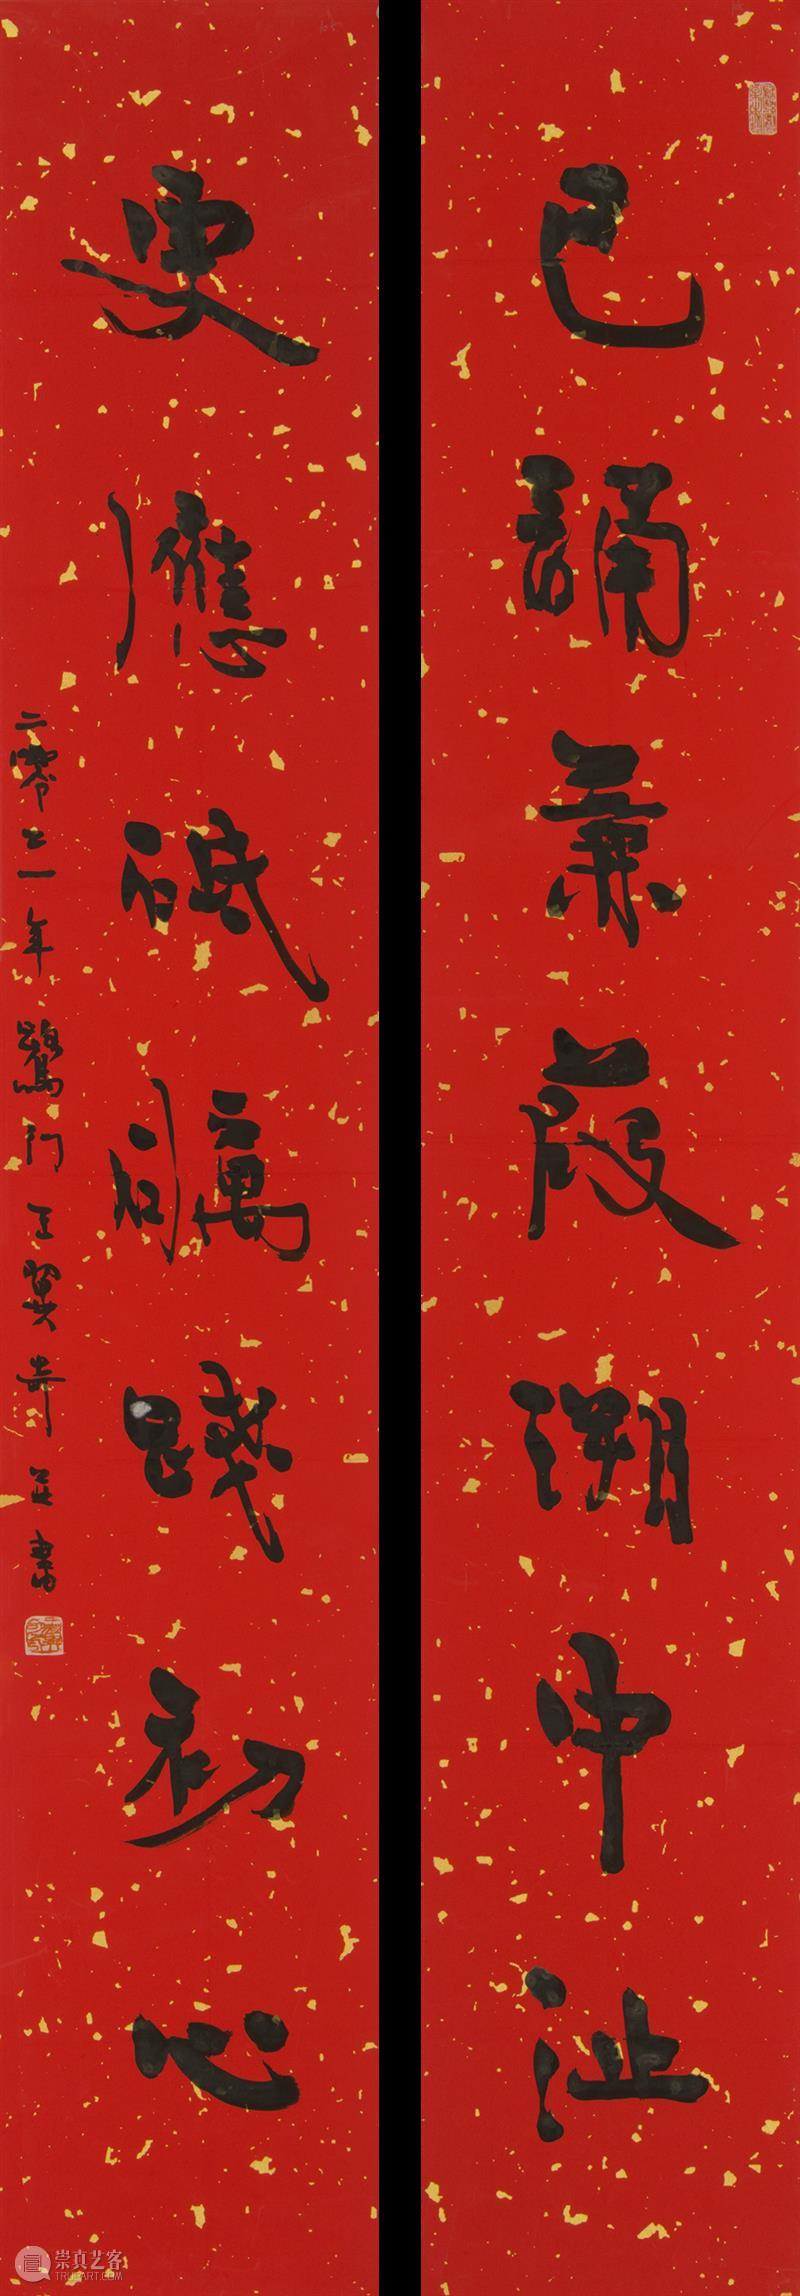 已誦蒹葭溯中沚
更應砥礪踐初心
二零二一年鷺門王翼奇並書
崇真艺客
TRUEART.COM